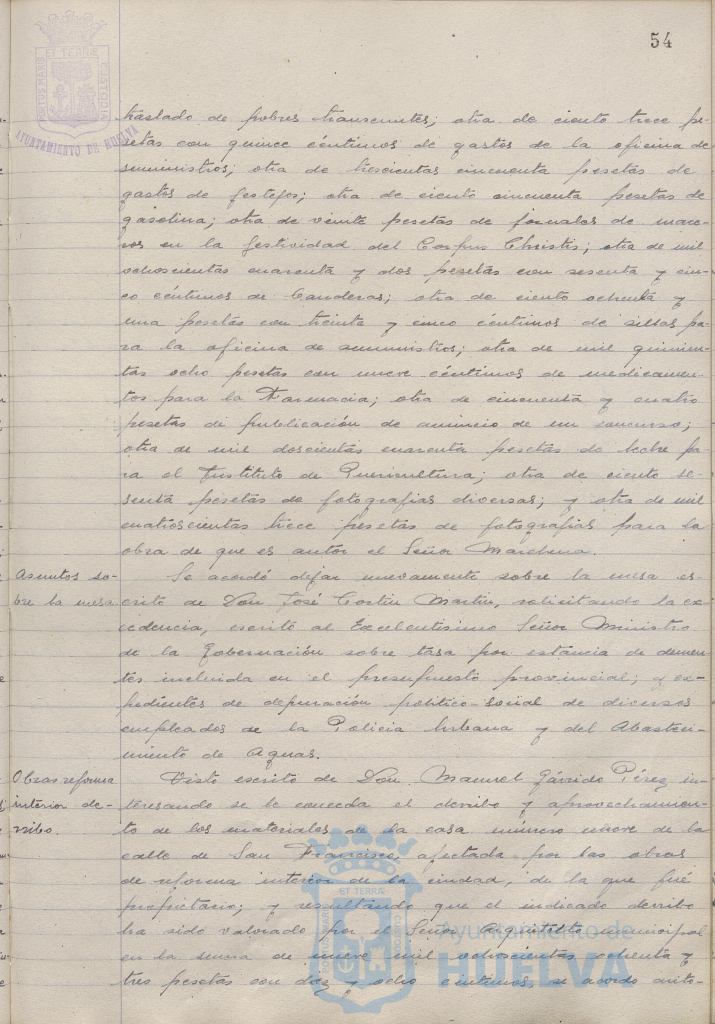 54
traslado de pobres transeuntes; otra de ciento trece pe-
setas con quince céntimos de gastos de la oficina de
suministros; otra de trescientas cincuenta pesetas de
gastos de festejos; otra de ciento cincuenta pesetas de
gasolina; otra de veinte pesetas de jornales de mace-
ros en la festividad del Corpus Christis; otra de mil
ochocientas cuarenta y dos pesetas con sesenta y cin-
co céntimos de banderas; otra de ciento ochenta y
una pesetas con treinta y cinco céntimos de sillas pa-
ra la oficina de suministros; otra de mil quinien-
tas ocho pesetas con nueve céntimos de medicamen-
tos para la Farmacia; otra de cincuenta y cuatro
pesetas de publicación de anuncio de un concurso;
otra de mil doscientas cuarenta pesetas de leche pa-
ra el Instituto de Puericultura; otra de ciento se-
senta pesetas de fotografias diversas; y otra de mil
cuatroscientas trece pesetas de fotografias para la
obra de que es autor el Señor Marchena.
Asuntos so-
bre la mesa
Se acordó dejar nuevamente sobre la mesa es-
crito de Don José Martin, solicitando la ex-
cedencia, escrito al Excelentisimo Señor Ministro
de la Gobernación sobre tasa por estancia de demen-
tes incluida en el presupuesto provincial; y ex-
pedientes de depuración politico-social de diversos
empleados de la Policia Urbana y del Abasteci-
miento de Aguas.
Obras reforma
interior de-
rribo.
Visto escrito de Don Manuel Gárrido Pérez in-
teresando se le conceda el derribo y aprovechamien-
to de los materiales de la casa número nueve de la
calle de San Francisco, afectada por las obras
de reforma interior de la ciudad, de la que fué
propietario; y resultando que el indicado derribo
ha sido valorado por el Señor Arquitecto municipal
en la suma de nueve mil ochocientas ochenta y
tres pesetas con diez y ocho céntimos, se acordó auto-
PORTUS MARIS ET TERRAE CUSTODIA
AYUNTAMIENTO DE HUELVA
PORTUS MARIS ET TERRAE CUSTODIA
Ayuntamiento de
HUELVA